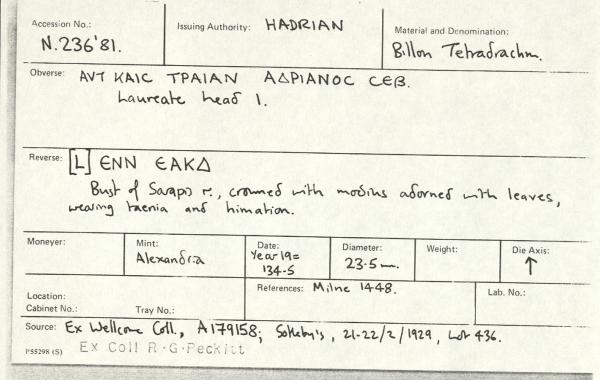 Accession No.: N.236'81.
Issuing Authority: HADRIAN
Material and Denomination: Billon Tetradrachm.
Obverse: ΑΥΤ ΚΑΙϹ ΤΡΑΙΑΝ ΑΔΡΙΑΝΟϹ ϹЄΒ.
Laureate head l.
Reverse: [L] ЄΝΝ ЄΑΚΔ
Bust of Sarapis r., crowned with modius adorned with leaves,
wearing taenia and himation.
Moneyer:
Mint: Alexandria
Date: Year 19 =
134-5
Diameter: 23.5 mm.
Weight:
Die Axis: ↑
Location:
Cabinet No.: Tray No.:
References: Milne 1448.
Lab. No.:
Source: Ex Wellcome Coll., A179158; Sotheby's, 21-22/2/1929, Lot 436.
P55298 (S) Ex Coll R.G.Peckitt